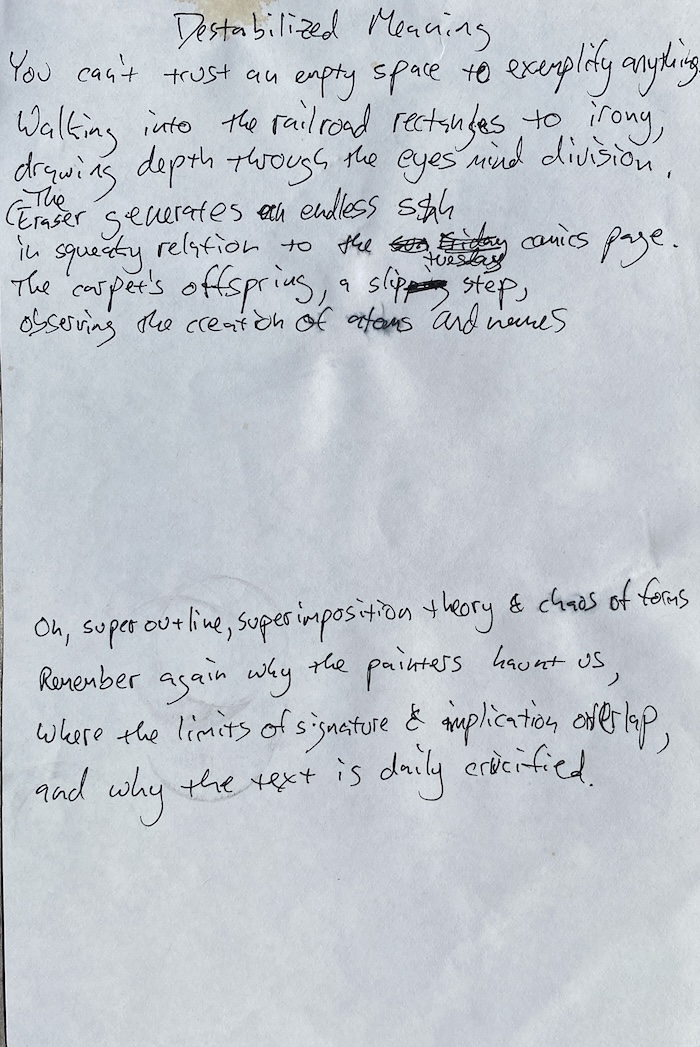 Destabilized Meaning
You can't trust an empty space to exemplify anything
Walking into the railroad rectangles to irony,
drawing depth through the eyes mind division.
The
Eraser generates an endless
in squeaky relation to the comics page.
tuesday
The carpet's offspring, a slip step,
observing the creation of atoms and names
Oh, super outline, superimposition theory & chaos of forms
Remember again why the painters haunt us,
where the limits of signature & implication overlap,
and why the text is daily crucified.